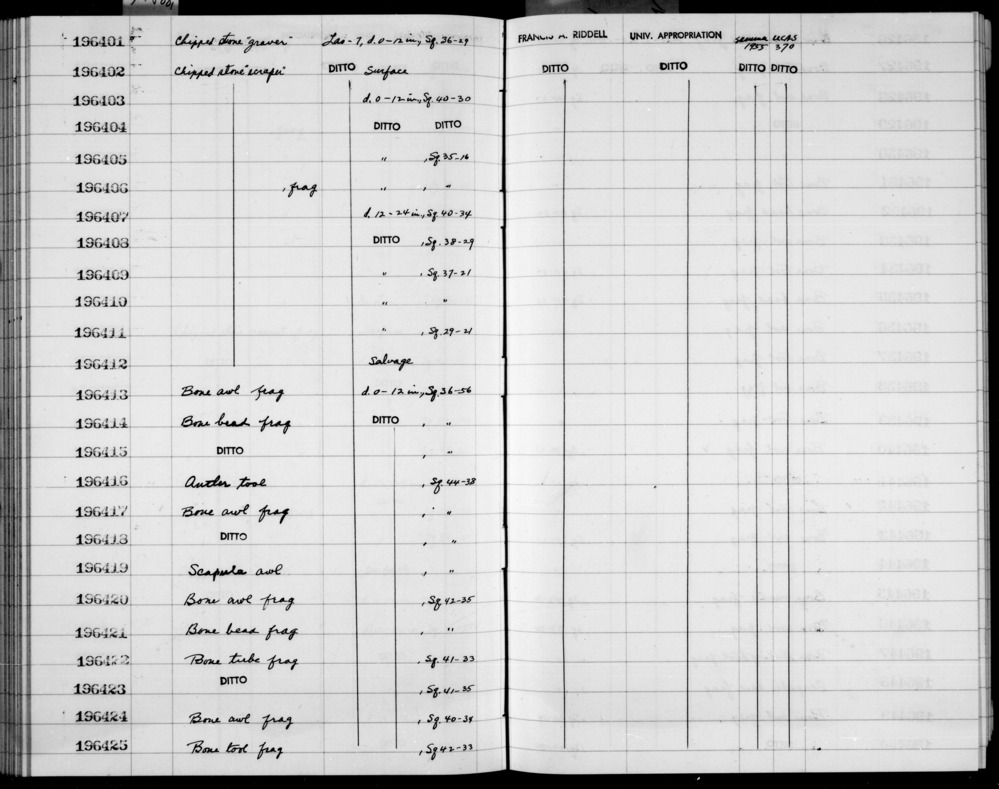 196401 Chipped stone "graver" Las-7, d. 0-12 in, Sq. 36-29 FRANCIS A. RIDDELL UNIV. APPROPRIATION summer 1955 UCAS 370
196402 Chipped stone "scraper" DITTO Surface DITTO DITTO DITTO DITTO
196403 d. 0-12 in, Sq. 40-30
196404 DITTO DITTO
196405 " , Sq. 35-16
196406 , frag " , "
196407 d. 12-24 in, Sq. 40-34
196408 DITTO , Sq. 38-29
196409 " , Sq. 37-21
196410 " "
196411 " , Sq. 29-21
196412 Salvage
196413 Bone awl frag d. 0-12 in, Sq. 36-56
196414 Bone bead frag DITTO , "
196415 DITTO , "
196416 Antler tool , Sq. 44-38
196417 Bone awl frag , "
196418 DITTO , "
196419 Scapula awl , "
196420 Bone awl frag , Sq 42-35
196421 Bone bead frag , "
196422 Bone tube frag , Sq. 41-33
196423 DITTO , Sq. 41-35
196424 Bone awl frag , Sq. 40-34
196425 Bone tool frag , Sq 42-33